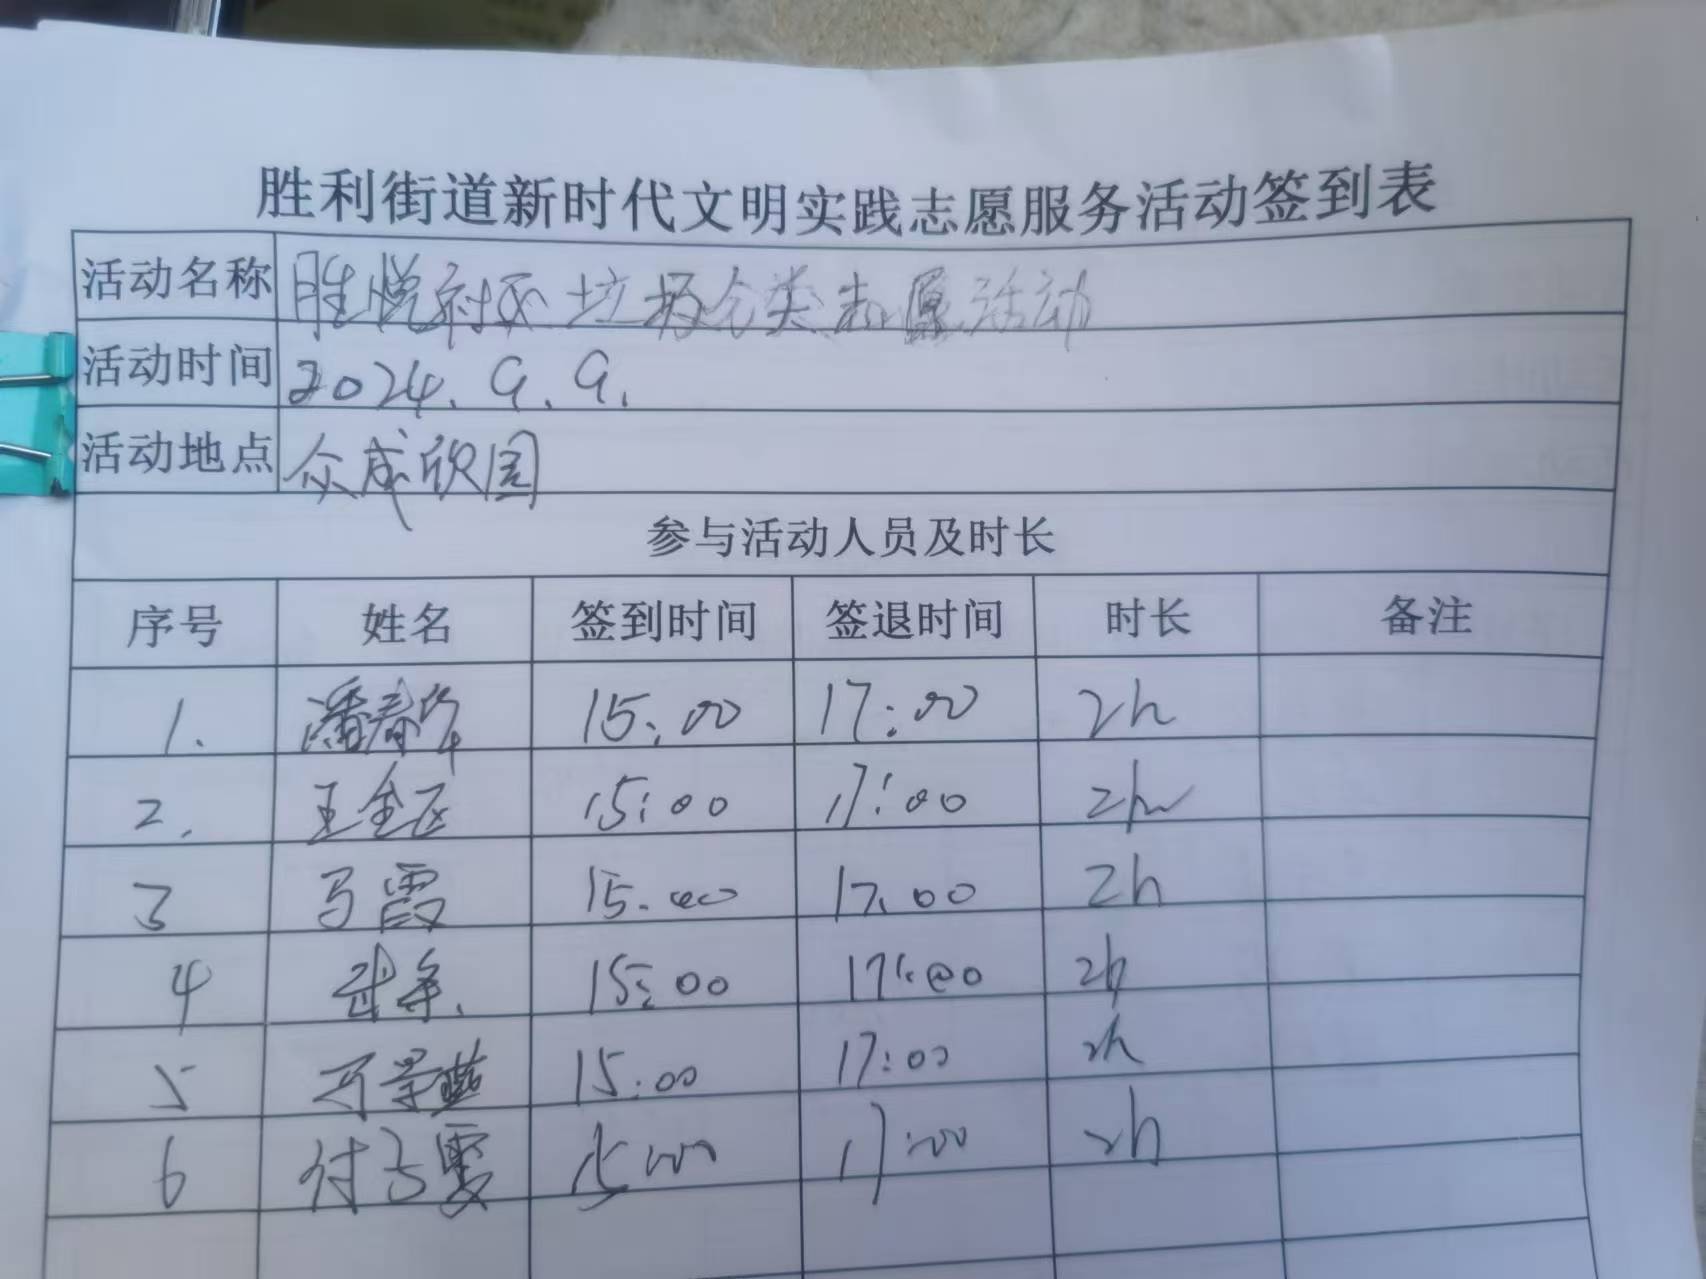 胜利街道新时代文明实践志愿服务活动签到表
活动名称 胜悦社区垃圾分类志愿活动
活动时间 2024.9.9.
活动地点 众成欣园
参与活动人员及时长
序号 姓名 签到时间 签退时间 时长 备注
1. 潘春华 15:00 17:00 2h
2. 王金 15:00 17:00 2h
3 马霞 15:00 17:00 2h
4 武 15:00 17:00 2h
5 15:00 17:00 2h
6 付 霞 15:00 17:00 2h